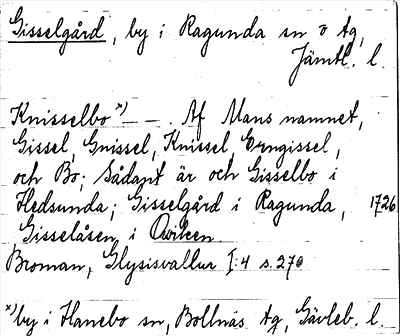 Gisselgård, by i Ragunda sn o tg,
Jämtl. l.
Knisselbo x) – – . Af Mans namnet,
Gissel, Gnissel, Knissel, Erngissel,
och Bo; Sådant är och Gisselbo i
Hedsunda; Gisselgård i Ragunda, 1726
Gisselåsen, i Qwiken
Broman, Glysisvallur I:4 s. 270
x) by i Hanebo sn, Bollnäs tg, Gävleb. l.